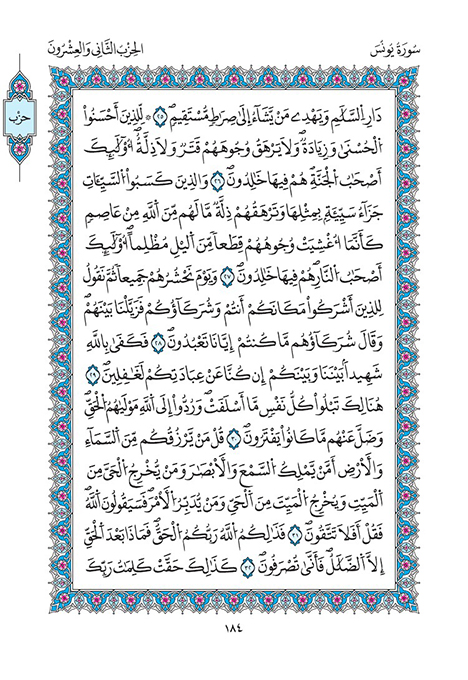 سُورَةُ يُونُسَ
الحِزْبُ الثَّانِي وَالعِشْرُونَ
حزب
دَارِ اِ۬لسَّلَٰمِ وَيَهْدِے مَنْ يَّشَآءُ اِلَيٰ صِرَٰطٖ مُّسْتَقِيمٖۖ ٢٥ لِّلذِينَ أَحْسَنُواْ
اُ۬لْحُسْن۪يٰ وَزِيَادَةٞۖ وَلَا يَرْهَقُ وُجُوهَهُمْ قَتَرٞ وَلَا ذِلَّةٌۖ ا۟وْلَٰٓئِكَ
أَصْحَٰبُ اُ۬لْجَنَّةِ هُمْ فِيهَا خَٰلِدُونَۖ ٢٦ وَالذِينَ كَسَبُواْ اُ۬لسَّيِّـَٔاتِ
جَزَآءُ سَيِّئَةِۢ بِمِثْلِهَا وَتَرْهَقُهُمْ ذِلَّةٞۖ مَّا لَهُم مِّنَ اَ۬للَّهِ مِنْ عَاصِمٖ
كَأَنَّمَآ أُغْشِيَتْ وُجُوهُهُمْ قِطَعاٗ مِّنَ اَ۬ليْلِ مُظْلِماًۖ ا۟وْلَٰٓئِكَ
أَصْحَٰبُ اُ۬لنّ۪ارِ هُمْ فِيهَا خَٰلِدُونَۖ ٢٧ وَيَوْمَ نَحْشُرُهُمْ جَمِيعاٗ ثُمَّ نَقُولُ
لِلذِينَ أَشْرَكُواْ مَكَانَكُمُۥٓ أَنتُمْ وَشُرَكَآؤُكُمْۖ فَزَيَّلْنَا بَيْنَهُمْۖ
وَقَالَ شُرَكَآؤُهُم مَّا كُنتُمُۥٓ إِيَّانَا تَعْبُدُونَۖ ٢٨ فَكَف۪يٰ بِاللَّهِ
شَهِيداَۢ بَيْنَنَا وَبَيْنَكُمُۥٓ إِن كُنَّا عَنْ عِبَادَتِكُمْ لَغَٰفِلِينَۖ ٢٩
هُنَالِكَ تَبْلُواْ كُلُّ نَفْسٖ مَّآ أَسْلَفَتْۖ وَرُدُّوٓاْ إِلَي اَ۬للَّهِ مَوْل۪يٰهُمُ اُ۬لْحَقِّۖ
وَضَلَّ عَنْهُم مَّا كَانُواْ يَفْتَرُونَۖ ٣٠ قُلْ مَنْ يَّرْزُقُكُم مِّنَ اَ۬لسَّمَآءِ
وَالَارْضِ أَمَّنْ يَّمْلِكُ اُ۬لسَّمْعَ وَالَابْصَٰرَ وَمَنْ يُّخْرِجُ اُ۬لْحَيَّ مِنَ
اَ۬لْمَيِّتِ وَيُخْرِجُ اُ۬لْمَيِّتَ مِنَ اَ۬لْحَيِّ وَمَنْ يُّدَبِّرُ اُ۬لَامْرَۖ فَسَيَقُولُونَ اَ۬للَّهُۖ
فَقُلَ اَفَلَا تَتَّقُونَۖ ٣١ فَذَٰلِكُمُ اُ۬للَّهُ رَبُّكُمُ اُ۬لْحَقُّۖ فَمَاذَا بَعْدَ اَ۬لْحَقِّ
إِلَّا اَ۬لضَّلَٰلُۖ فَأَنّ۪يٰ تُصْرَفُونَۖ ٣٢ كَذَٰلِكَ حَقَّتْ كَلِمَٰتُ رَبِّكَ
١٨٤